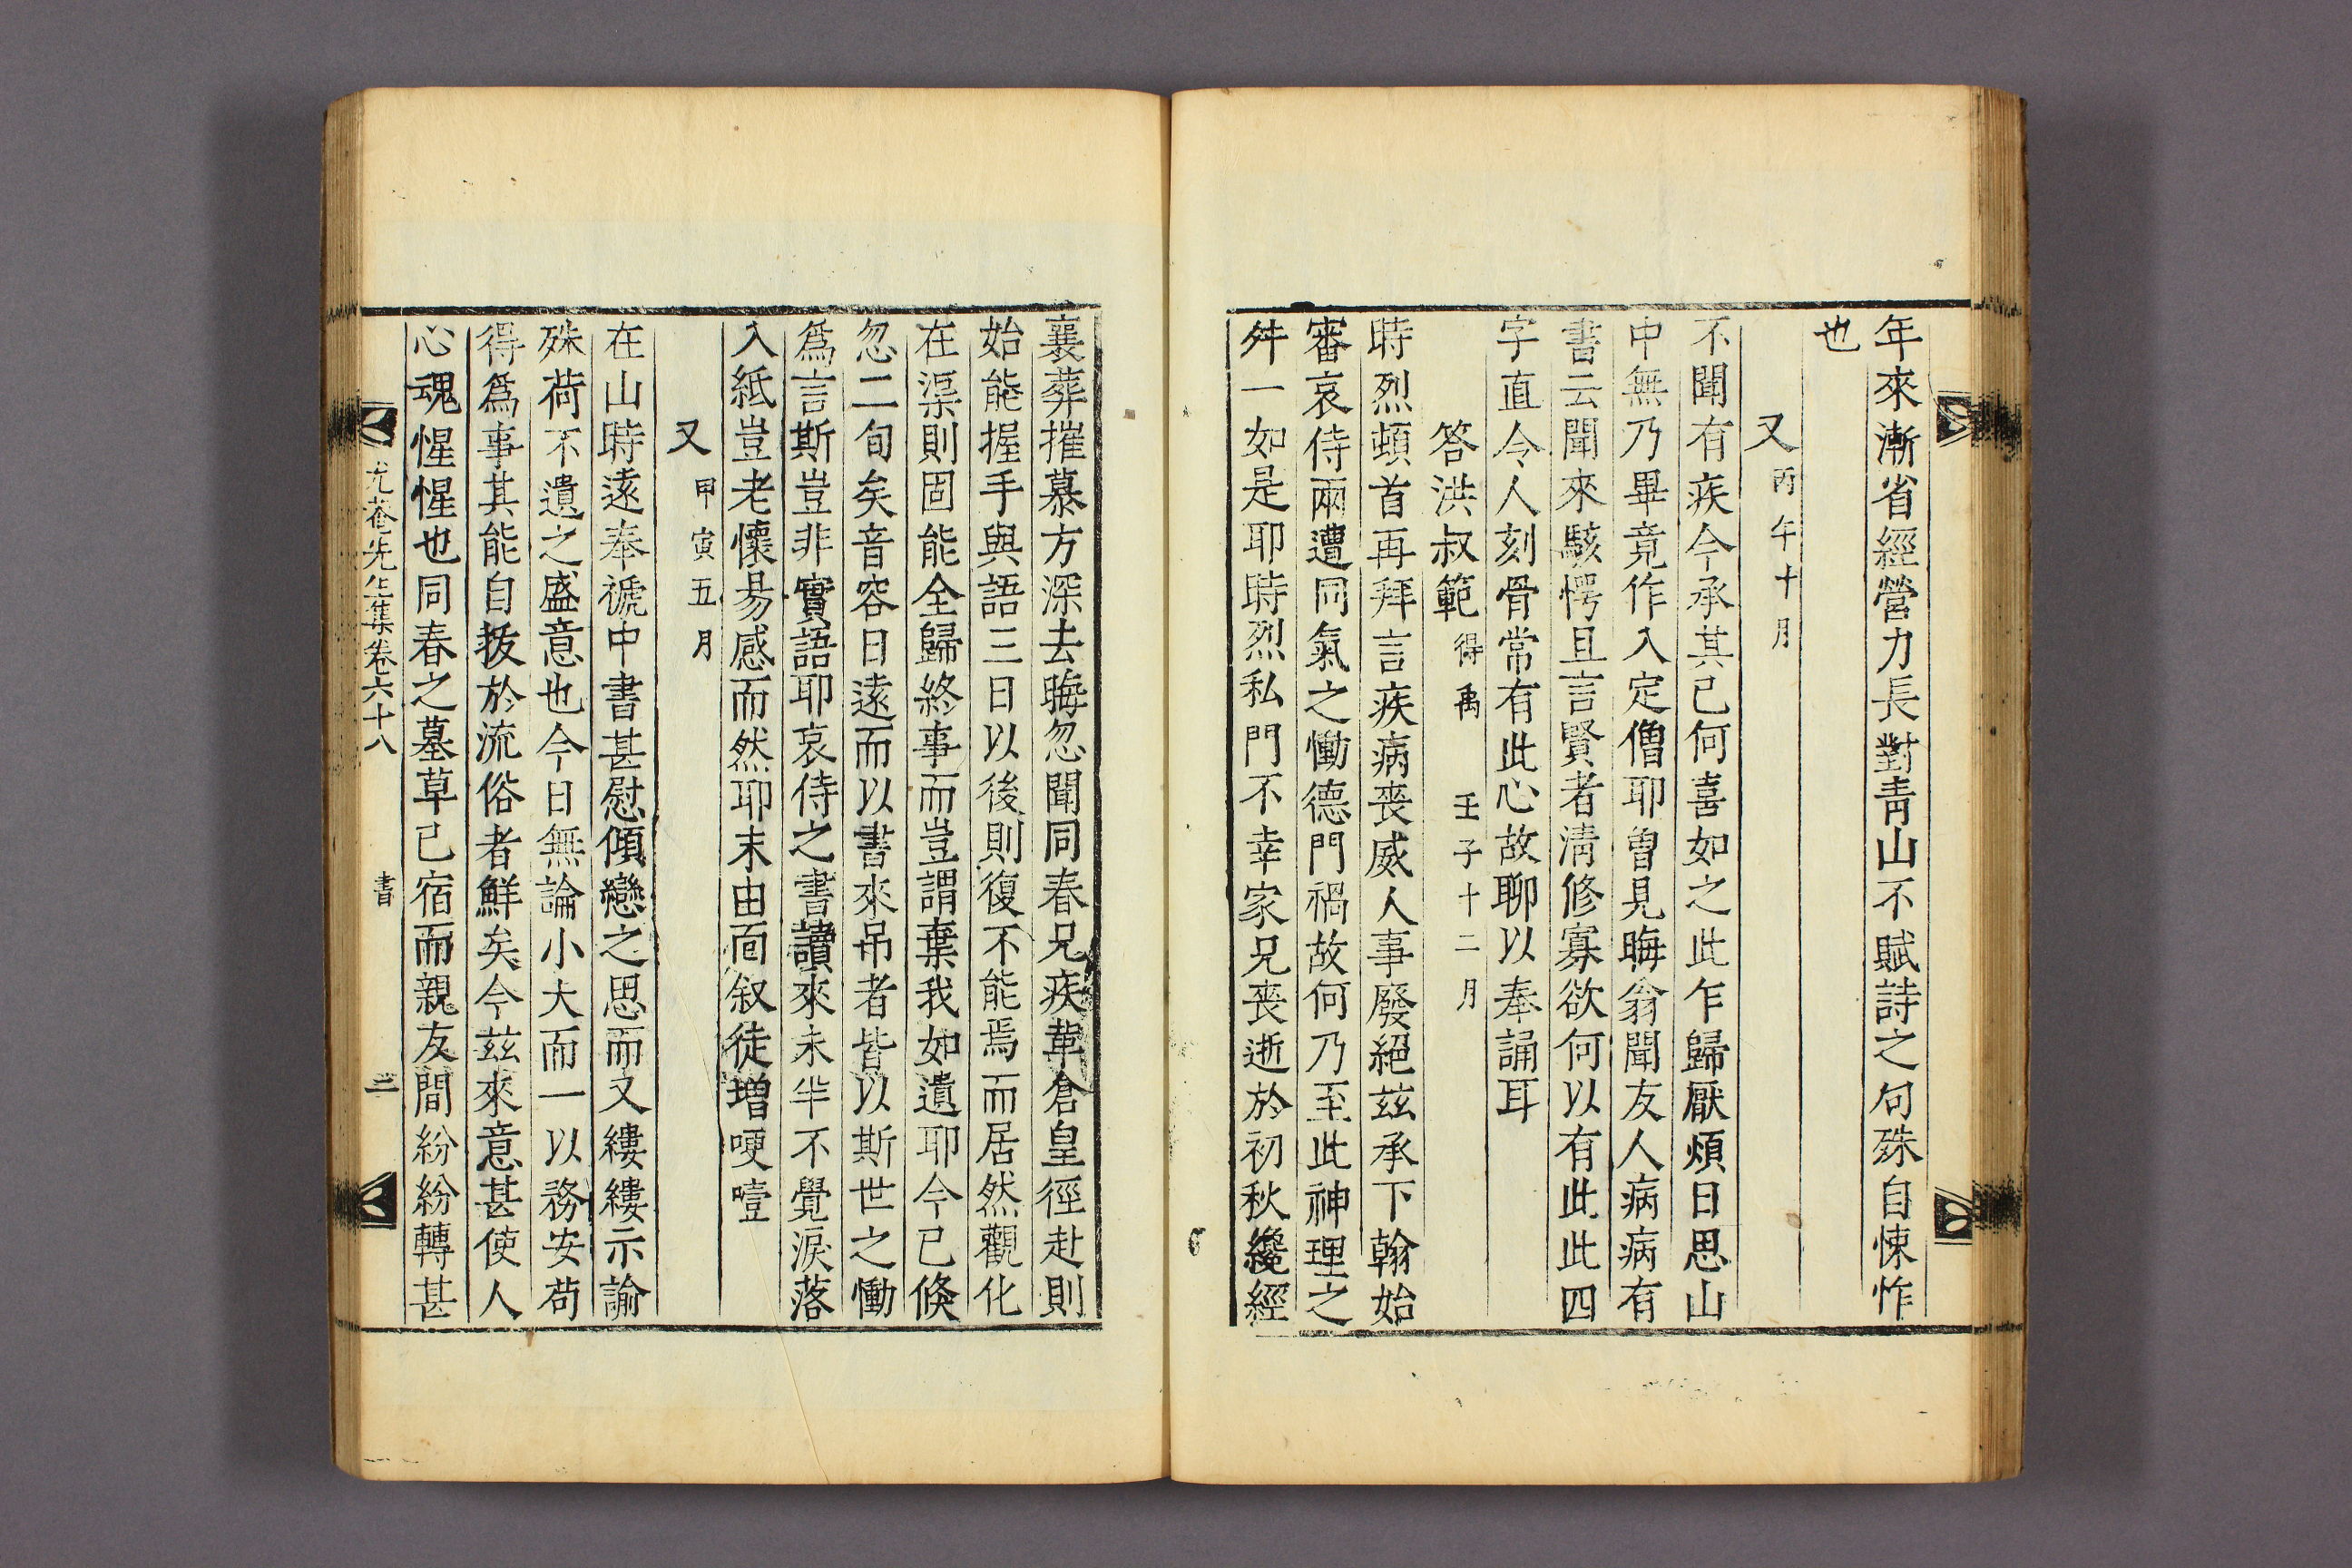 年來漸省經營力長對靑山不賦詩之句殊自悚怍
也
又 丙午十月
不聞有疾今承其已何喜如之此乍歸厭煩日思山
中無乃畢竟作入定僧耶曾見晦翁聞友人病病有
書云聞來駭愕且言賢者淸修寡欲何以有此此四
字直令人刻骨常有此心故聊以奉誦耳
答洪叔範 得禹 壬子十二月
時烈頓首再拜言疾病喪威人事廢絕玆承下翰始
審哀侍兩遭同氣之慟德門禍故何乃至此神理之
舛一如是耶時烈私門不幸家兄喪逝於初秋纔經
襄葬摧慕方深去晦忽聞同春兄疾革倉皇徑赴則
始能握手與語三日以後則復不能焉而居然觀化
在渠則固能全歸終事而豈謂棄我如遺耶今已倏
忽二旬矣音容日遠而以書來吊者皆以斯世之慟
爲言斯豈非實語耶哀侍之書讀來未半不覺淚落
入紙豈老懷易感而然耶末由面叙徒增哽噎
又 甲寅五月
在山時遠奉褫中書甚慰傾戀之思而又縷縷示諭
殊荷不遺之盛意也今日無論小大而一以務安苟
得爲事其能自拔於流俗者鮮矣今玆來意甚使人
心魂惺惺也同春之墓草已宿而親友間紛紛轉甚
尤菴先生集卷六十八 書 二